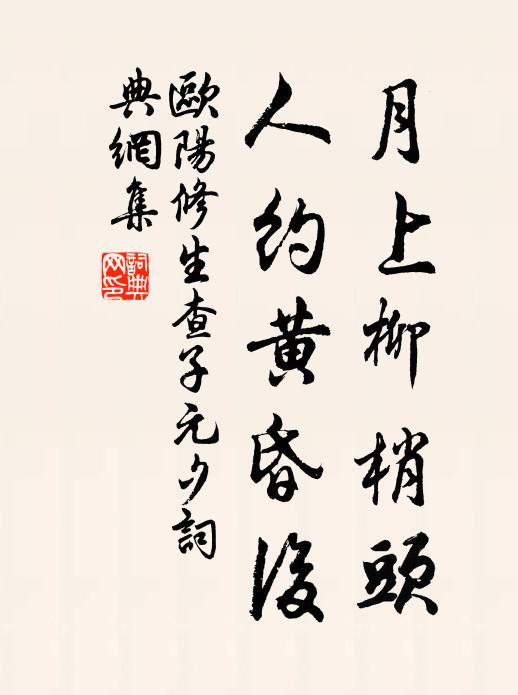 月上柳梢頭
人約黃昏後
歐陽修生查子元夕詞
典網集
詞典
网印